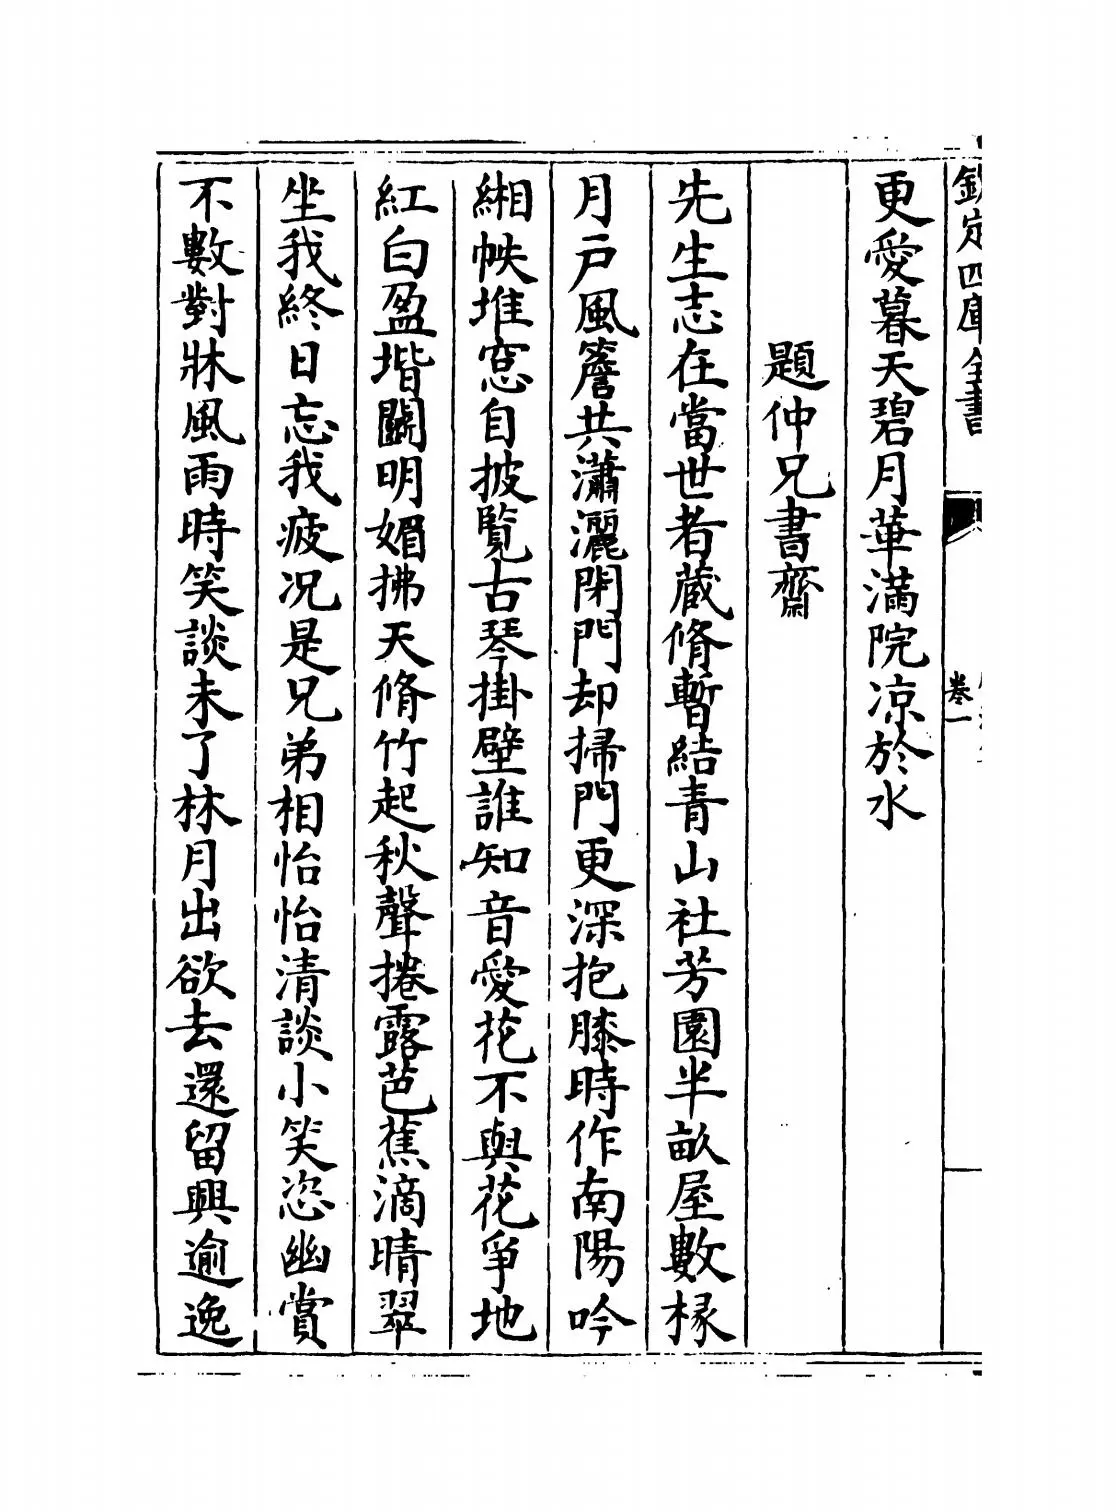 欽定四庫全書
卷一
更愛暮天碧月華滿院凉於水
題仲兄書齋
先生志在當世者蔵脩暫結青山社芳園半畝屋數椽
月戸風簷共瀟灑閉門却掃門更深抱膝時作南陽吟
緗帙堆窓自披覽古琴掛壁誰知音愛花不與花爭地
紅白盈堦鬬明媚拂天脩竹起秋聲捲露芭蕉滴晴翠
坐我終日忘我疲况是兄弟相怡怡清談小笑恣幽賞
不數對牀風雨時笑談未了林月出欲去還留興逾逸